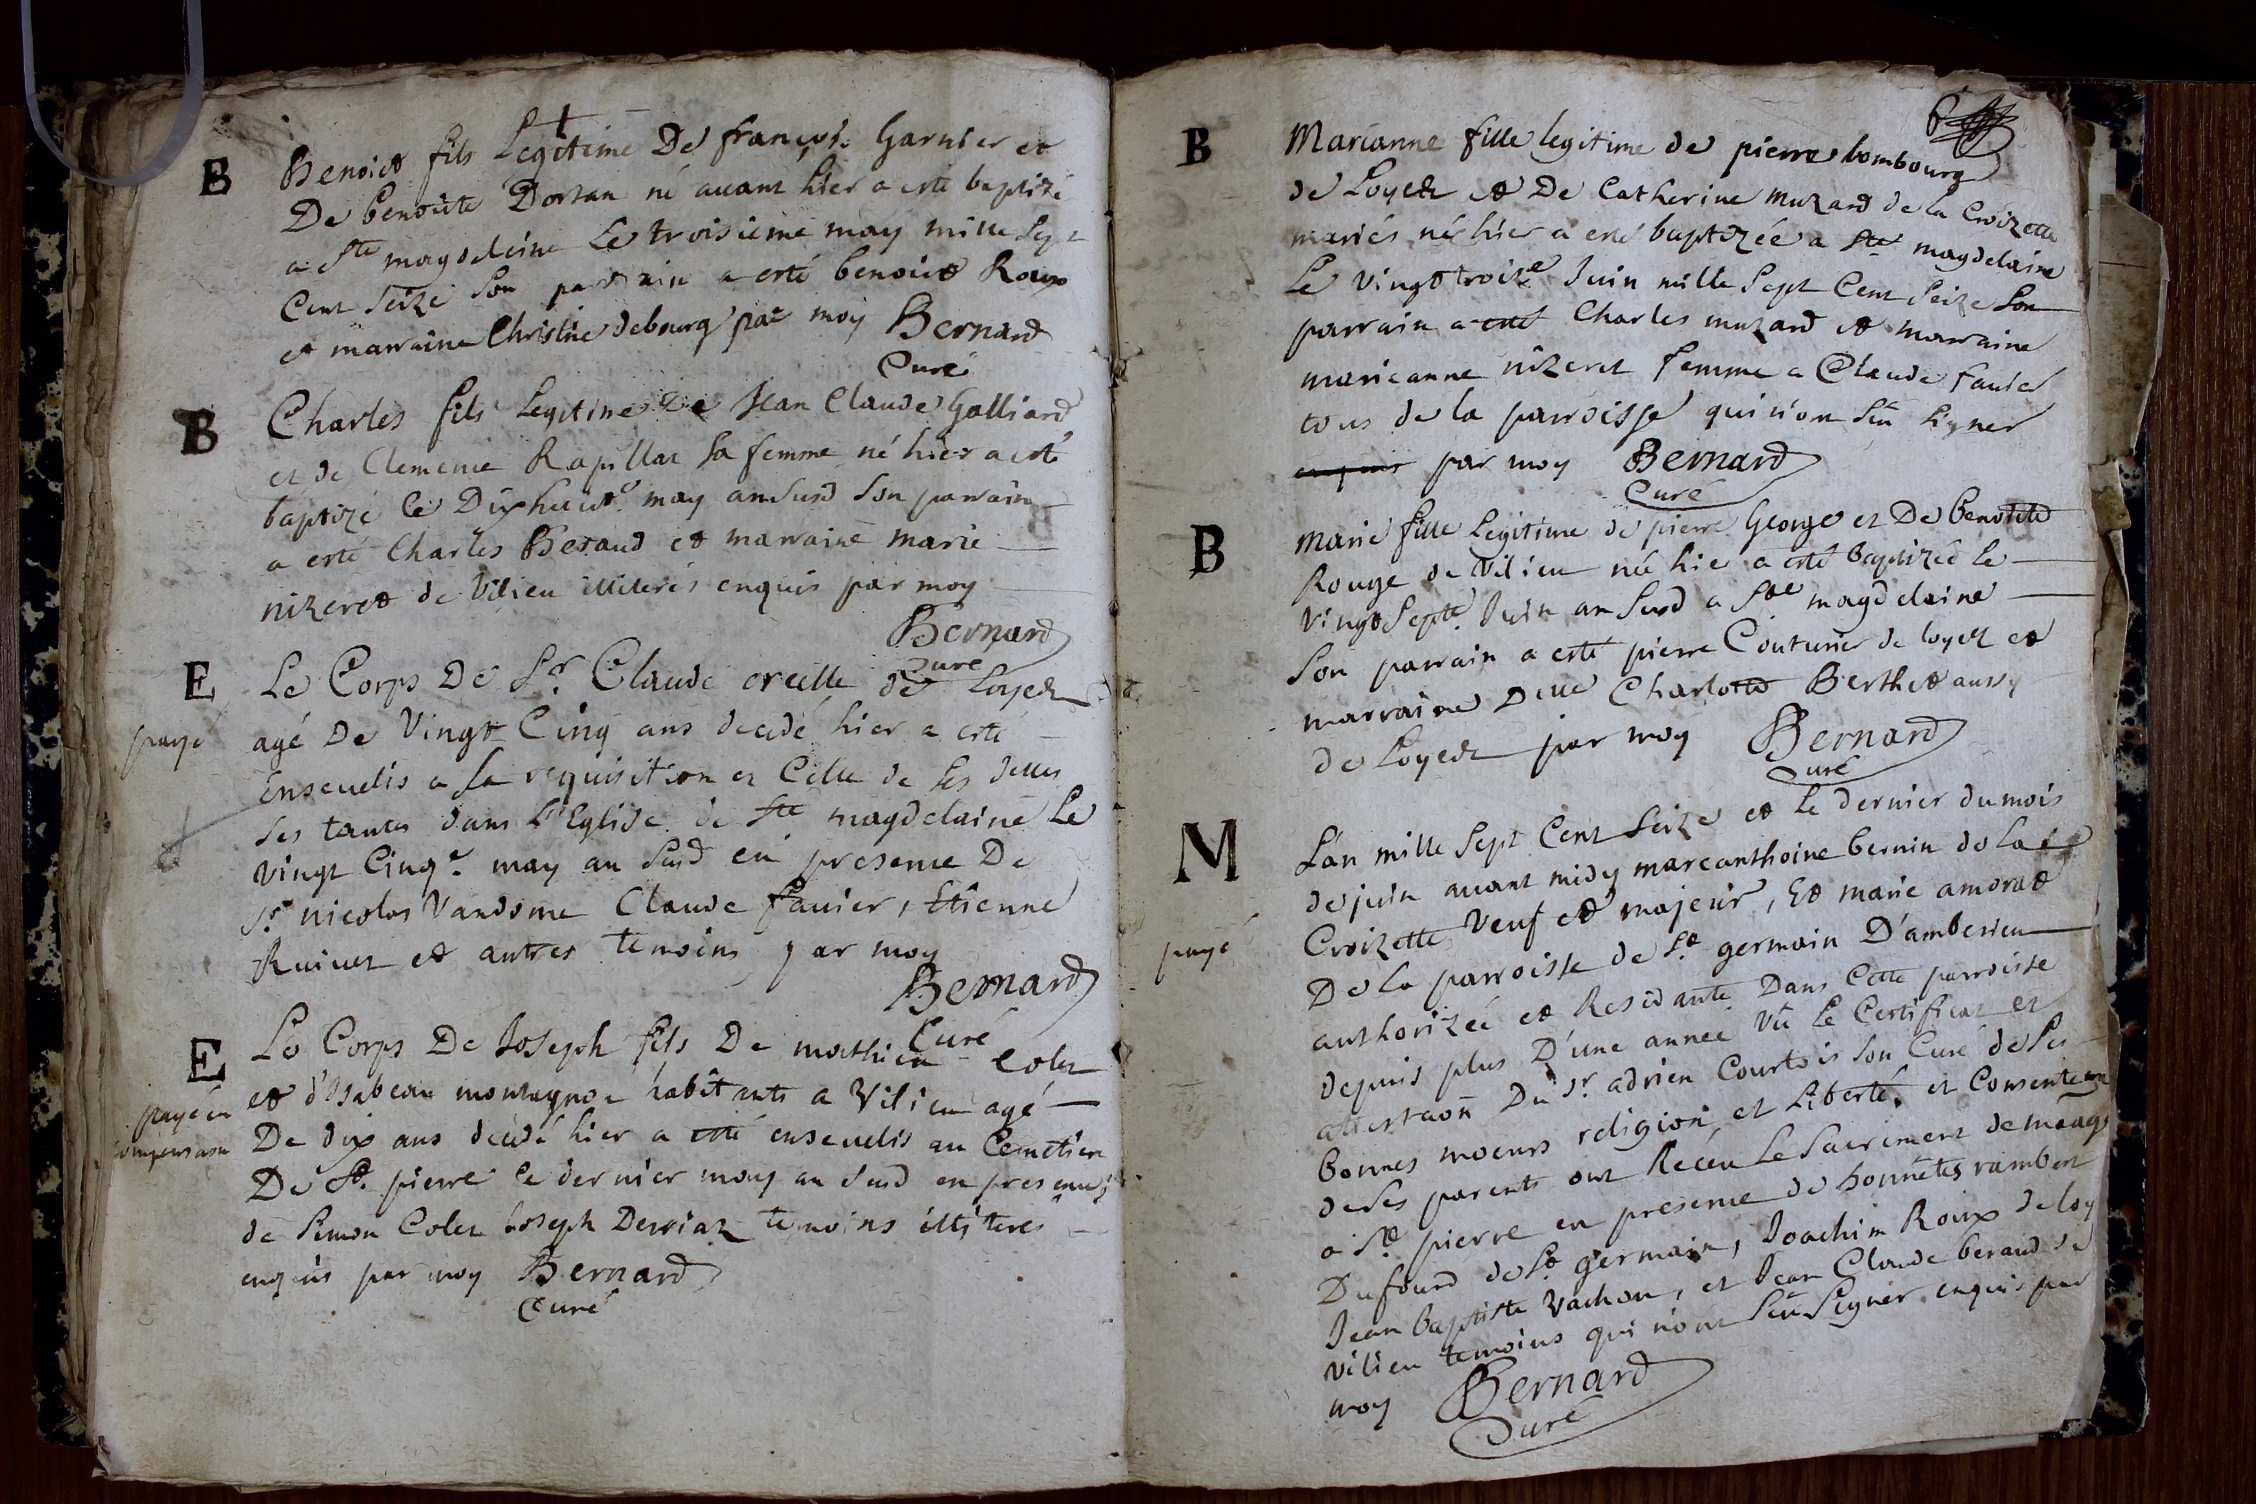 B
Benoict fils Legitime De francois Garnier et
De benoite Dortan né auant hier a esté baptizé
a Ste magdeleine Le troisieme may mille Sept
Cent Seize Son parrain a esté benoict Roux
et marraine Christine debourg par moy Bernard
Curé
B
Charles fils Legitime De Jean Claude Galliard
et de Clemence Rapillat Sa femme né hier a esté
baptizé le Dixhuict.e may an Susd Son parrain
a esté Charles Beraud et marraine marie
nizeret de Vilieu illiterés enquis par moy
Bernard
Curé
E
Le Corps De Sr. Claude oreille de Loyett
payé
agé De Vingt Cinq ans decedé hier a esté
Enseuelis a Sa requisition et Celle de Ses dlles
Ses tantes dans L'Eglise de Ste magdelaine Le
Vingt Cinq.e may an Susd en presence De
Sr. nicolas Vandome Claude fauier, Etienne
Ruiuet et autres temoins par moy
Bernard
Curé
E
Le Corps De Joseph fils De mathieu Colet
et d'Isabeau montagnon habitants a Vilieu agé
payé en
De dix ans decedé hier a esté enseuelis au Cemetiere
De St. pierre le dernier may an Susd en presence
de Simon Colet Joseph Derriaz temoins illiteres
enquis par moy Bernard
Curé
6
B
Marianne fille legitime de pierre bombourg
de Loyett et De Catherine muzard de la Croizette
mariés né hier a esté baptizée a Ste magdelaine
Le Vingt troiz.e Juin mille Sept Cent Seize Son
parrain a esté Charles muzard et marraine
marieanne nizeret femme a Claude fauier
tous de la parroisse qui n'ont Sceu Signer
enquis par moy Bernard
Curé
B
Marie fille Legitime de pierre George et De benoitte
Rouge de Vilieu née hier a esté baptizée le
Vingt Sept.e Juin an Susd a Ste magdelaine
Son parrain a esté pierre Couturier de loyett et
marraine Dlle Charlotte Berthet aussy
de Loyett par moy Bernard
Curé
M
L'an mille Sept Cent Seize et le dernier du mois
de juin auant midy marcanthoine bernin de La
Croizette Veuf et majeur, Et marie amorat
payé
De La parroisse de St. germain D'amberieu
authorizée et Residante Dans Cette parroisse
depuis plus D'une année Vû Le Certificat et
attestaon Du Sr. adrien Courtois Son Curé de Ses
bonnes moeurs religion, et Liberté, et Consentem
de Ses parents ont Receu Le Sacrement de mariage
a St. pierre en presence de honnêtes rambert
Dufourd de St. germain, Joachim Roux de loy
Jean baptiste Vachon, et Jean Claude beraud de
Vilieu temoins qui n'ont Sceu Signer enquis par
moy Bernard
Curé